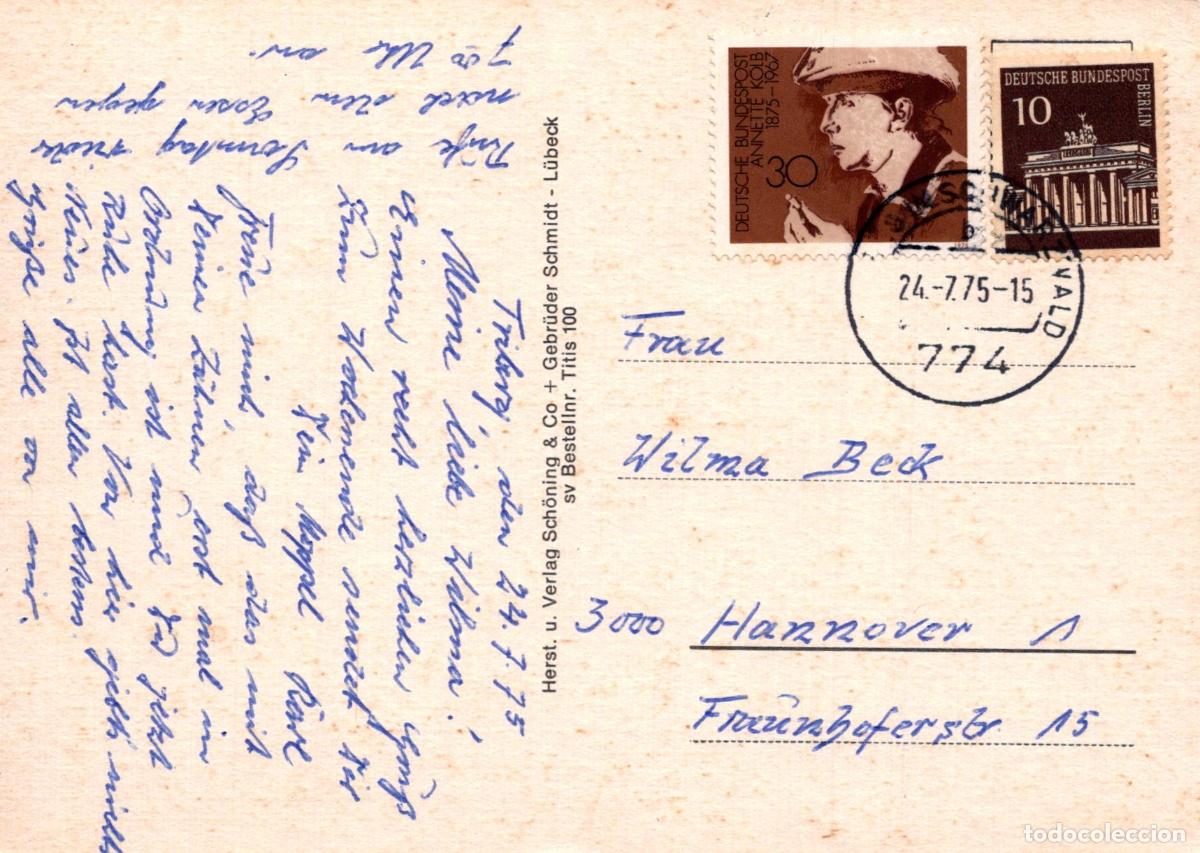 Triberg, den 24.7.75
Meine liebe Wilma!
Einen recht herzlichen Gruß
zum Wochenende sendet Dir
Dein Moppel Karl
Freue mich, daß das mit
Deinen Zähnen erst mal in
Ordnung ist und Du jetzt
Ruhe hast. Von hier giebts nichts
Neues. Ist alles bestens.
Grüße alle von mir.
Rufe am Sonntag wieder
nach dem Essen gegen
7 00 Uhr an.
Herst. u. Verlag Schöning & Co + Gebrüder Schmidt - Lübeck
sv Bestellnr. Titis 100
DEUTSCHE BUNDESPOST
ANNETTE KOLB
1875-1967
30
DEUTSCHE BUNDESPOST
BERLIN
10
SCHWARZWALD
24.-7.75-15
774
Frau
Wilma Beck
3000 Hannover 1
Fraunhoferstr 15
todocoleccion